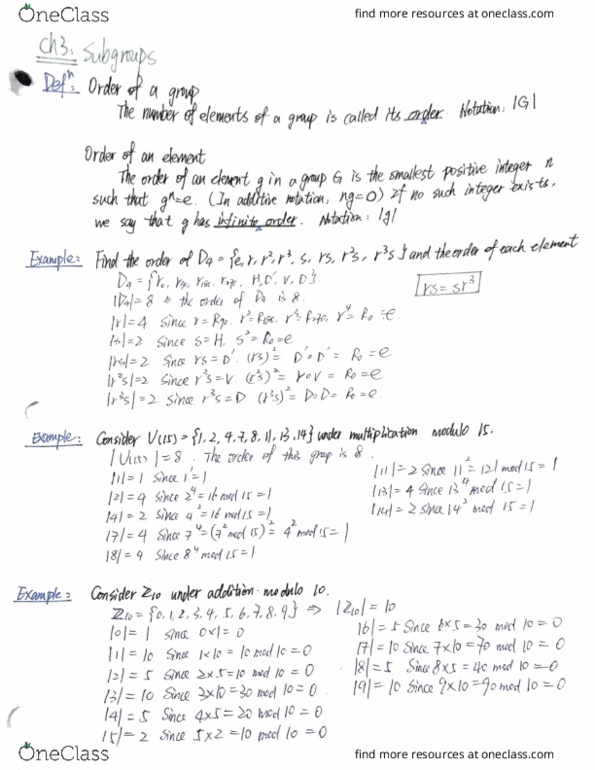 OneClass
find more resources at oneclass.com
Ch3: Subgroups
Defⁿ: Order of a group
The number of elements of a group is called its order. Notation: |G|
Order of an element
The order of an element g in a group G is the smallest positive integer n
such that gⁿ=e. (In additive notation, ng=0) If no such integer exists,
we say that g has infinite order. Notation: |g|
Example: Find the order of D₄ = {e, r, r², r³, s, rs, r²s, r³s} and the order of each element
D₄ = { H, D', V, D}
rs = sr³
|D₄|=8 the order of D₄ is 8.
|r|=4 since r=R₉₀. r⁴=R₀=e
|s|=2 since s=H, s²=R₀=e
|rs|=2 since rs=D'. (rs)²= D'∘D' = R₀=e
|r²s|=2 since r²s=V. (r²s)²= V∘V = R₀=e
|r³s|=2 since r³s=D (r³s)²= D∘D= R₀=e.
Example: Consider U(15)={1, 2, 4, 7, 8, 11, 13, 14} under multiplication modulo 15.
|U(15)|=8. The order of this group is 8.
|1|=1 since 1¹=1
|2|=4 since 2⁴=16 mod 15=1
|4|=2 since 4²=16 mod 15=1
|7|=4 since 7⁴=(7² mod 15)²= 4² mod 15=1
|8|=4 since 8⁴ mod 15=1
|11|=2 since 11²=121 mod 15=1
|13|=4 since 13⁴ mod 15=1
|14|=2 since 14² mod 15=1
Example: Consider Z₁₀ under addition modulo 10.
Z₁₀={0, 1, 2, 3, 4, 5, 6, 7, 8, 9} ⇒ |Z₁₀|=10
|0|=1 since 0×1=0
|1|=10 since 1×10=10 mod 10=0
|2|=5 since 2×5=10 mod 10=0
|3|=10 since 3×10=30 mod 10=0
|4|=5 since 4×5=20 mod 10=0
|5|=2 since 5×2=10 mod 10=0
|6|=5 since 6×5=30 mod 10=0
|7|=10 since 7×10=70 mod 10=0
|8|=5 since 8×5=40 mod 10=0
|9|=10 since 9×10=90 mod 10=0
OneClass
find more resources at oneclass.com